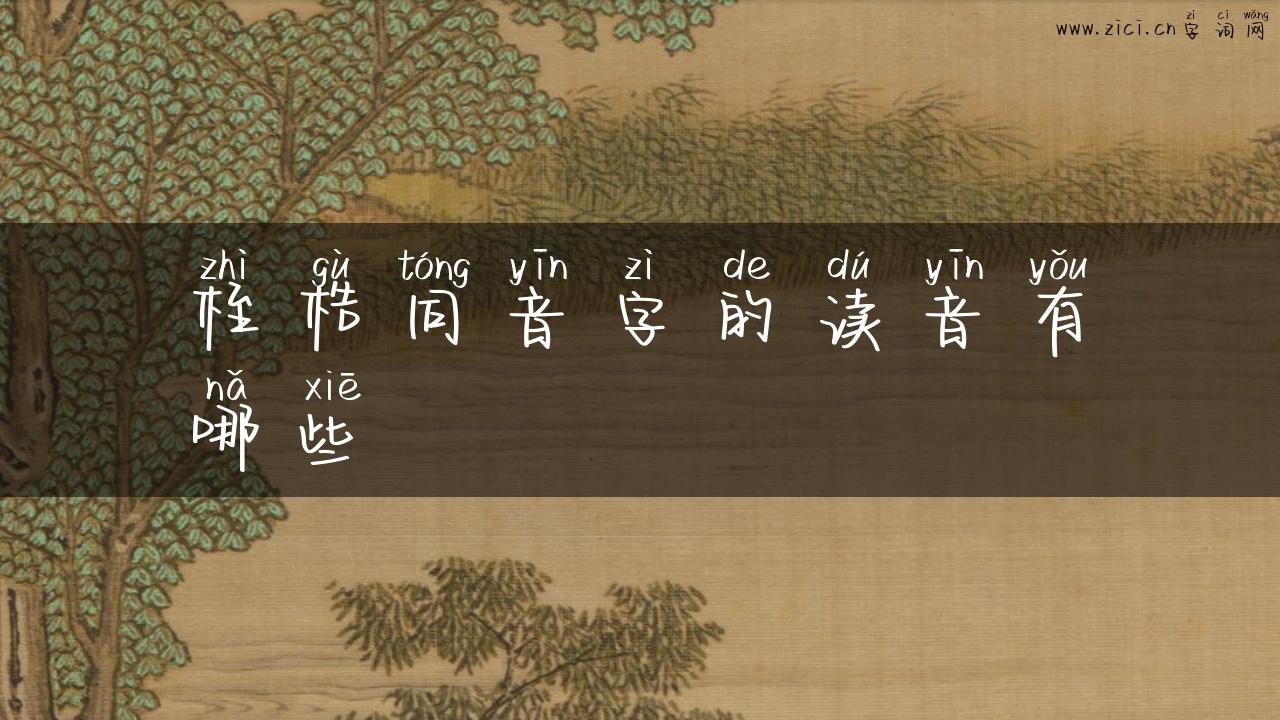 zì cí wǎng
www.zici.cn 字词网
zhì gù tóng yīn zì de dú yīn yǒu
桎梏同音字的读音有
nǎ xiē
哪些